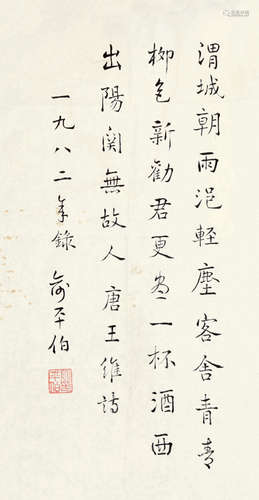 渭城朝雨浥輕塵客舍青青
柳色新勸君更盡一杯酒西
出陽關無故人唐王維詩
一九八二年錄 俞平伯